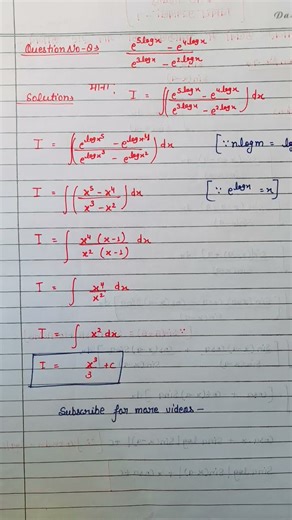 Da
Question No-03 e^{5logx} - e^{4logx} / e^{3logx} - e^{2logx}
Solutions माना: I = ∫(e^{5logx} - e^{4logx} / e^{3logx} - e^{2logx})dx
I = ∫(e^{logx⁵} - e^{logx⁴} / e^{logx³} - e^{logx²})dx [∵ nlogm = lo
I = ∫(x⁵ - x⁴ / x³ - x²)dx [∵ e^{logx} = x]
I = ∫ x⁴ (x-1) / x² (x-1) dx
I = ∫ x⁴ / x² dx
I = ∫ x² dx ∵
I = x³ / 3 + c
Subscribe for more videos —